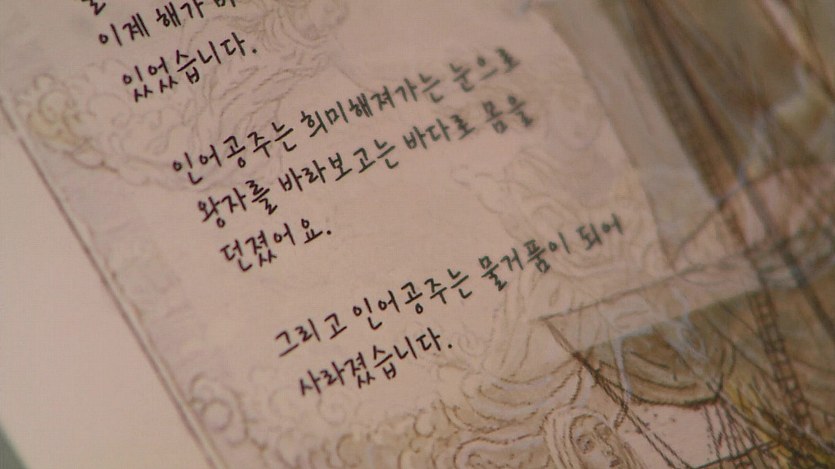 이제 해가
있었습니다.
인어공주는 희미해져가는 눈으로
왕자를 바라보고는 바다로 몸을
던졌어요.
그리고 인어공주는 물거품이 되어
사라졌습니다.